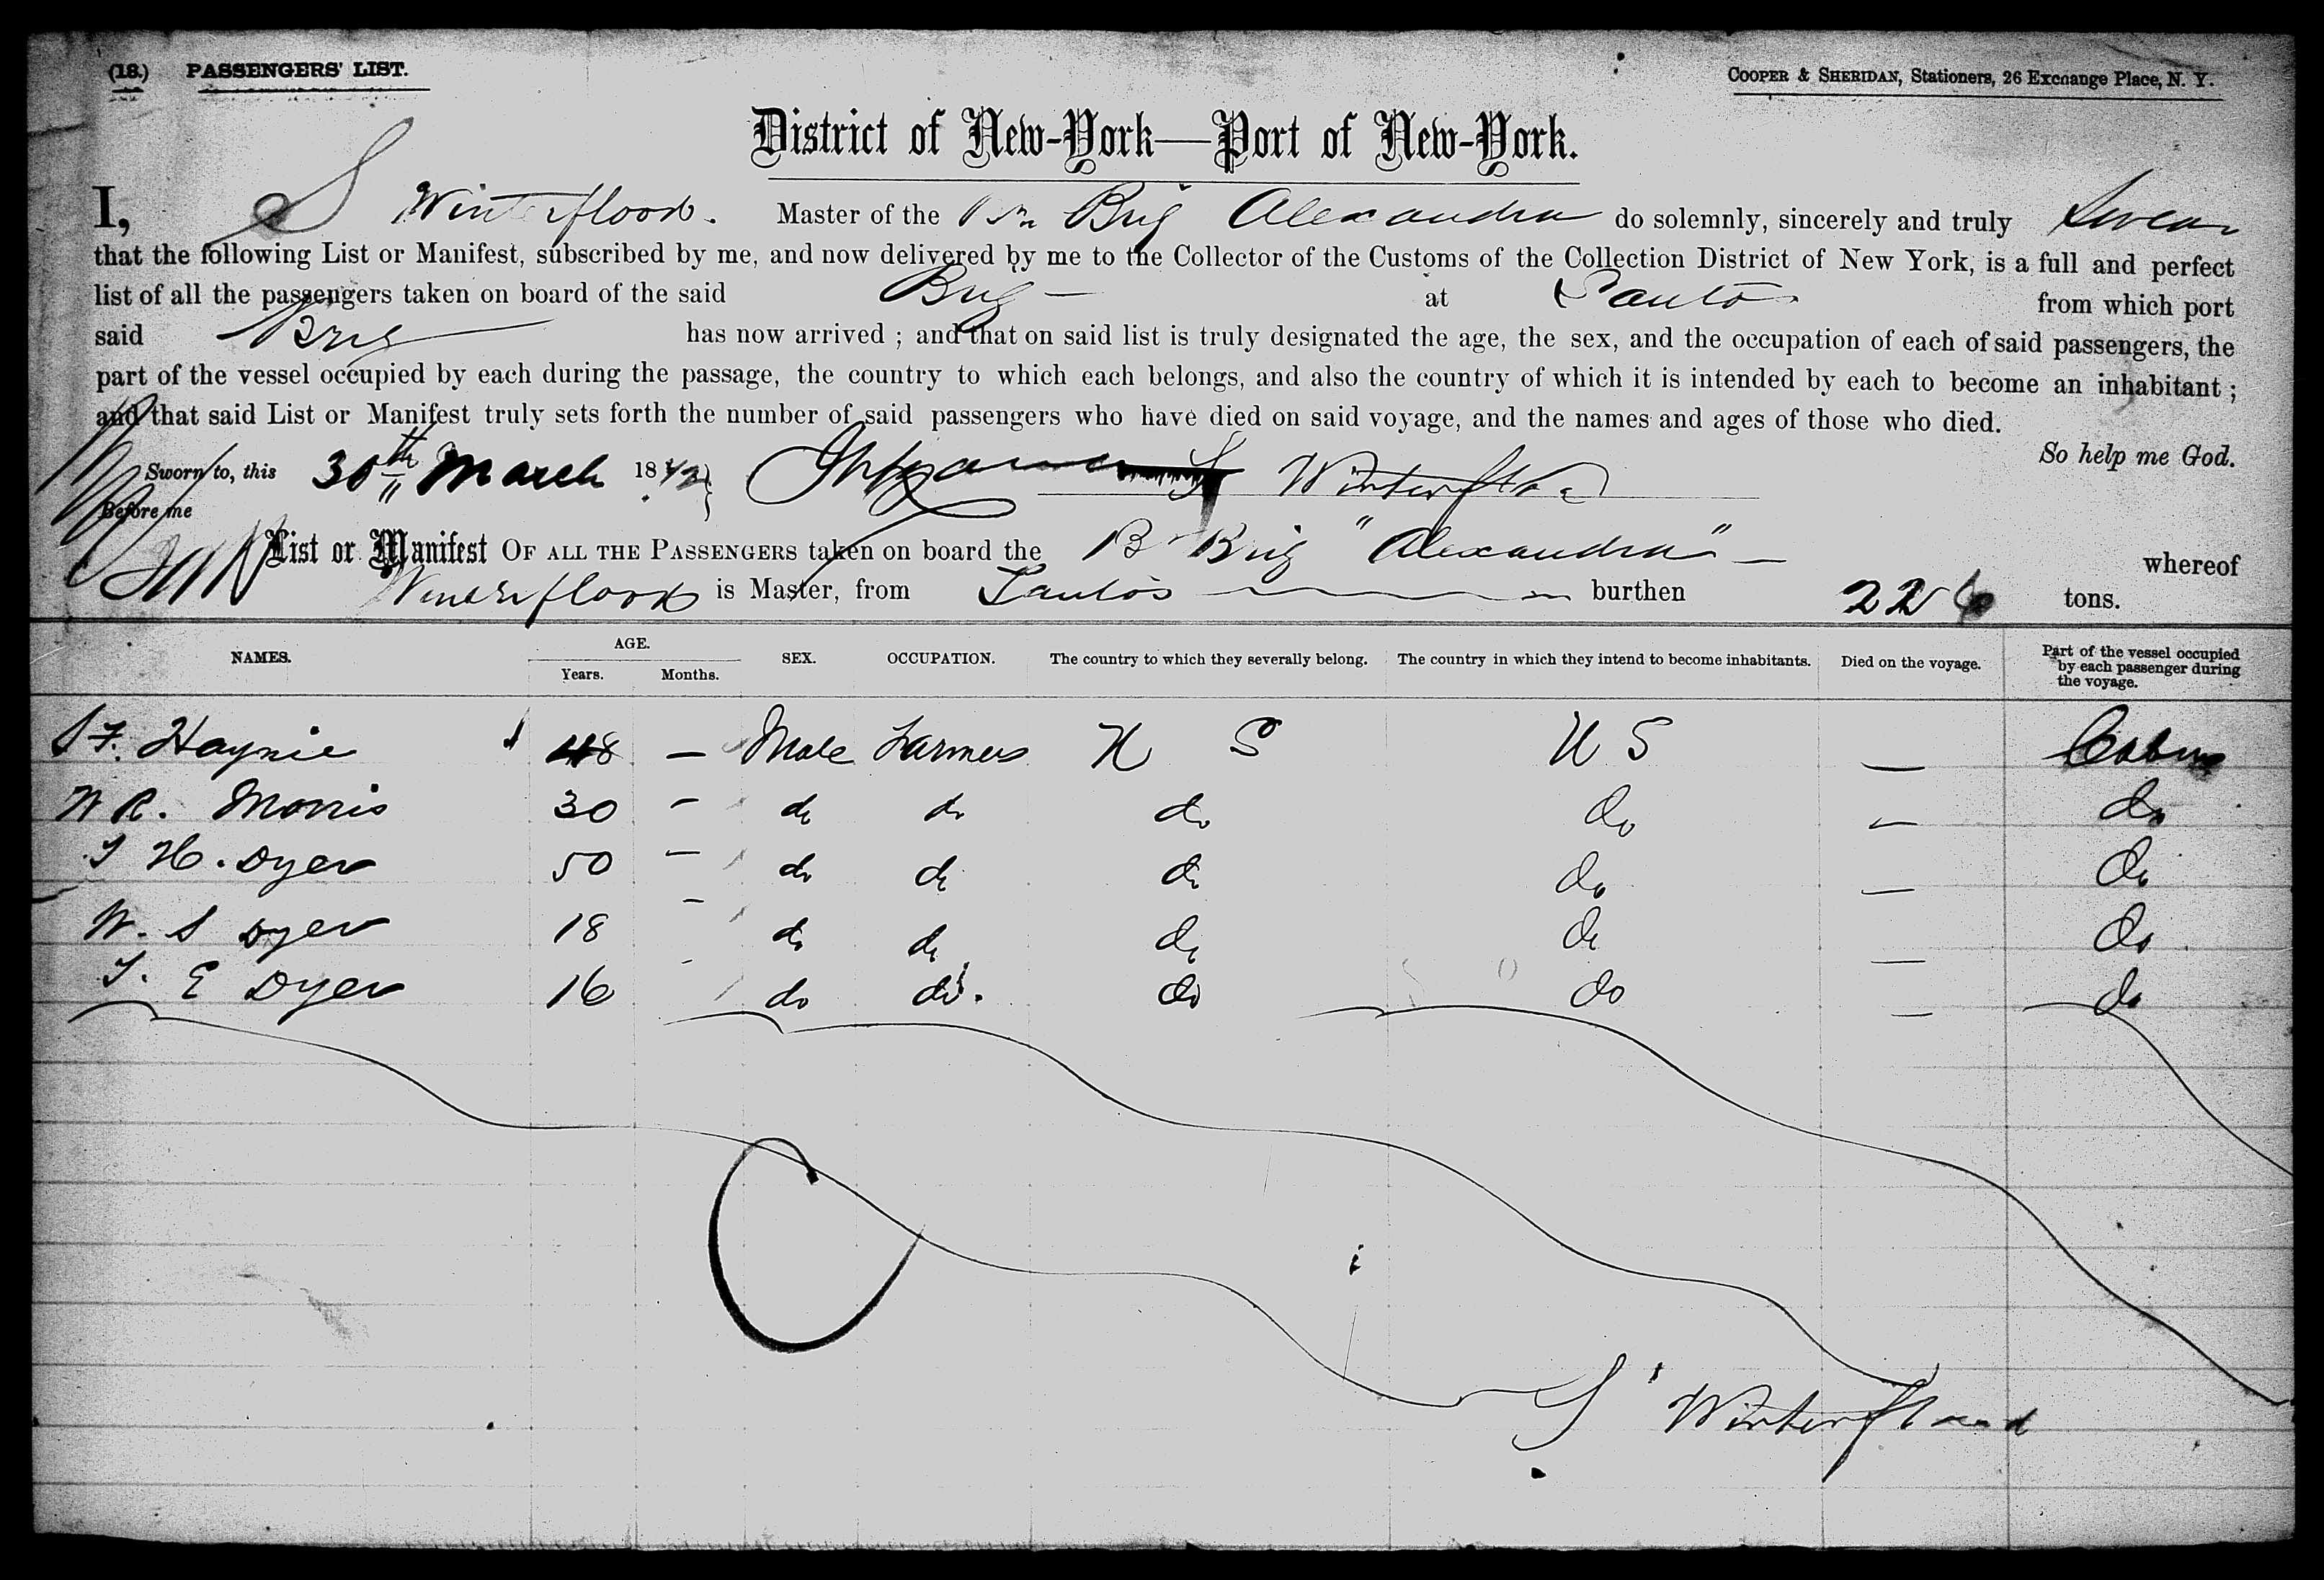 (18.) PASSENGERS' LIST.
COOPER & SHERIDAN, Stationers, 26 Exchange Place, N. Y.
District of New-York—Port of New-York.
I, S Winterflood. Master of the Br Brig Alexandra do solemnly, sincerely and truly Swear
that the following List or Manifest, subscribed by me, and now delivered by me to the Collector of the Customs of the Collection District of New York, is a full and perfect
list of all the passengers taken on board of the said Brig — at Santos from which port
said Brig has now arrived ; and that on said list is truly designated the age, the sex, and the occupation of each of said passengers, the
part of the vessel occupied by each during the passage, the country to which each belongs, and also the country of which it is intended by each to become an inhabitant ;
and that said List or Manifest truly sets forth the number of said passengers who have died on said voyage, and the names and ages of those who died.
So help me God.
Sworn to, this 30th March 18 S Winterflood
Before me
List or Manifest OF ALL THE PASSENGERS taken on board the B Brig "Alexandra" — whereof
Winterflood is Master, from Santos burthen 226 tons.
NAMES. AGE. Years. Months. SEX. OCCUPATION. The country to which they severally belong. The country in which they intend to become inhabitants. Died on the voyage. Part of the vessel occupied by each passenger during the voyage.
Haynie 48 — Male Farmers U S U S — Cabin
W R. Morris 30 — do do do do — do
J H. Dyer 50 — do do do do — do
W. S Dyer 18 - do do do do — do
J. E Dyer 16 - do do. do do — do
S Winterflood